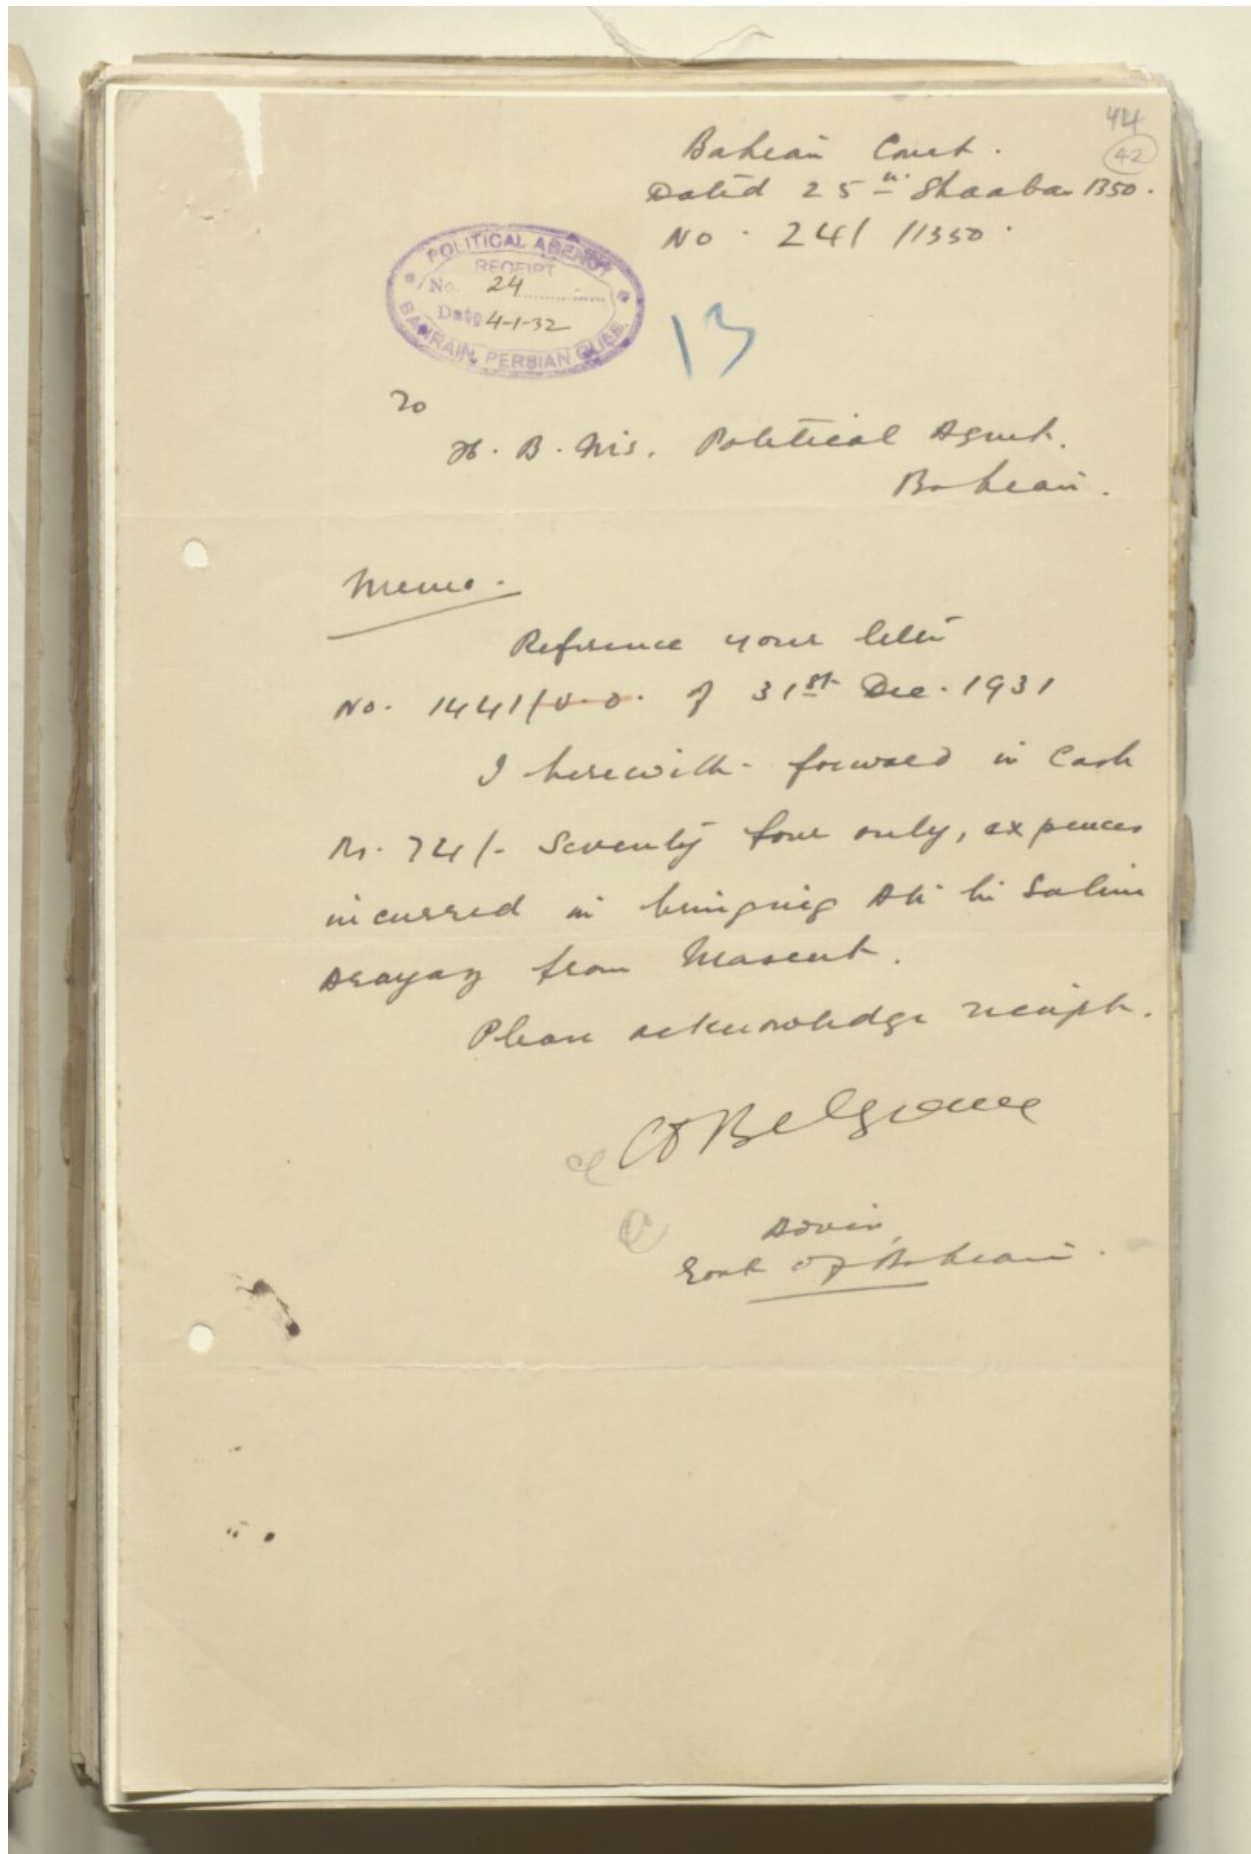 44
42
Bahrain Court.
Dated 25th Shaaban 1350.
No. 241/1350.
POLITICAL AGENCY
RECEIPT
No. 24
Date 4-1-32
BAHRAIN, PERSIAN GULF.
13
To
H. B. M's. Political Agent.
Bahrain.
Memo.
Reference your letter
No. 1441/ of 31st Dec. 1931
I herewith forward in Cash
Rs. 74/- Seventy four only, expences
incurred in bringing Ali bin Salim
from Mascut.
Please acknowledge receipt.
CD Belgrave
Govt of Bahrain.